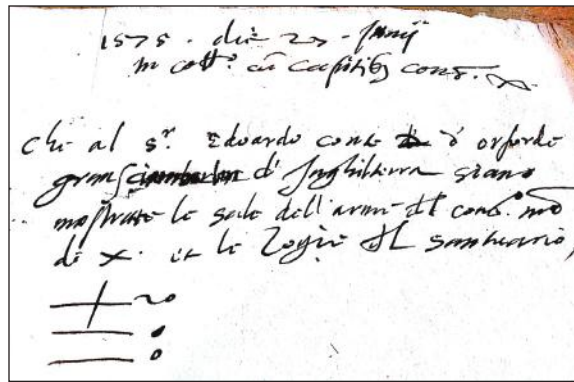 1575 · die 27 · Junij
in coll.o cu capitib9 cons. X
che al s.r Edoardo conte d' oxforde
gran ciamberlan d' Inghilterra siano
mostrate le sale dell'arme dl cons.o nro
di X. et le zogie dl santuario,
20
0
0